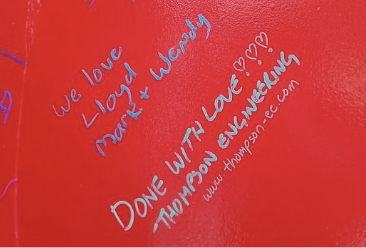 We love
Lloyd
Mark + Wendy
DONE WITH LOVE ♡♡♡
THOMPSON ENGINEERING
www.thompson-ec.com